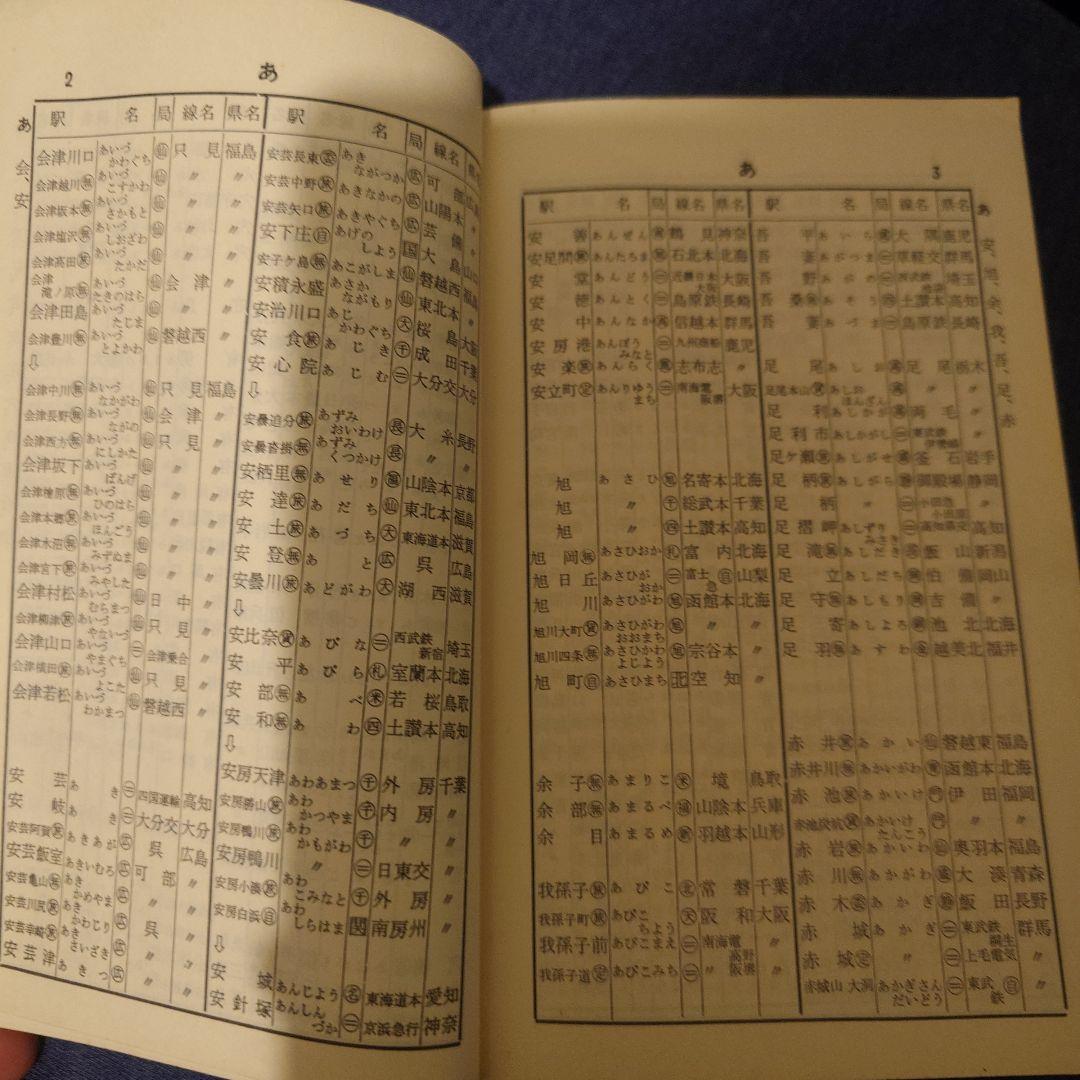 2 あ
あ 会、安
駅 名 局 線名 県名
会津川口 あいづかわぐち ㊋仙 只見 福島
会津越川 無 あいづこすかわ 仙 〃 〃
会津坂本 無 あいづさかもと 仙 〃 〃
会津塩沢 無 あいづしおざわ 仙 〃 〃
会津高田 旅 あいづたかだ 仙 〃 〃
会津滝ノ原 無 あいづたきのはら 仙 会津 〃
会津田島 あいづたじま 仙 〃 〃
会津豊川 無 あいづとよかわ 仙 磐越西 〃
⇩
会津中川 無 あいづなかがわ 仙 只見 福島
会津長野 無 あいづながの 仙 会津 〃
会津西方 無 あいづにしかた 仙 只見 〃
会津坂下 あいづばんげ 仙 〃 〃
会津檜原 無 あいづひのはら 仙 〃 〃
会津本郷 旅 あいづほんごう 仙 〃 〃
会津水沼 無 あいづみずぬま 仙 〃 〃
会津宮下 旅 あいづみやした 仙 〃 〃
会津村松 あいづむらまつ 仙 日中 〃
会津柳津 旅 あいづやないづ 仙 只見 〃
会津山口 あいづやまぐち 会津乗合 〃
会津横田 旅 あいづよこた 仙 只見 〃
会津若松 あいづわかまつ 仙 磐越西 〃
安芸 あき ㊁ 四国運輸 高知
安岐 あき ㊁ 大分交 大分
安芸阿賀 旅 あきあが 広 呉 広島
安芸飯室 あきいむろ 広 可部 〃
安芸亀山 無 あきかめやま 広 〃 〃
安芸川尻 旅 あきかわじり 広 呉 〃
安芸幸崎 旅 あきさいざき 広 〃 〃
安芸津 あきつ 広 〃 〃
駅 名 局 線名
安芸長束 あきながつか 広 可部 広島
安芸中野 旅 あきなかの 広 山陽本 〃
安芸矢口 旅 あきやぐち 広 芸備 〃
安下庄 自 あげのしよう 国 大島 山口
安子ケ島 旅 あこがしま 仙 磐越西 福島
安積永盛 あさかながもり 仙 東北本 〃
安治川口 あじかわぐち 大 桜島 大阪
安食 旅 あじき 千 成田 千葉
安心院 あじむ ㊁ 大分交 大分
⇩
安曇追分 旅 あずみおいわけ 長 大糸 長野
安曇沓掛 無 あずみくつかけ 長 〃 〃
安栖里 無 あせり 福 山陰本 京都
安達 旅 あだち 仙 東北本 福島
安土 旅 あづち 大 東海道本 滋賀
安登 無 あと 広 呉 広島
安曇川 旅 あどがわ 大 湖西 滋賀
⇩
安比奈 貨 あびな ㊁ 西武鉄新宿 埼玉
安平 あびら 札 室蘭本 北海
安部 無 あべ 米 若桜 鳥取
安和 無 あわ 四 土讃本 高知
⇩
安房天津 あわあまつ 千 外房 千葉
安房勝山 旅 あわかつやま 千 内房 〃
安房鴨川 旅 あわかもがわ 千 〃 〃
安房鴨川 〃 ㊁ 日東交 〃
安房小湊 旅 あわこみなと 千 外房 〃
安房白浜 自 あわしらはま 関 南房州 〃
⇩
安城 あんじよう 名 東海道本 愛知
安針塚 あんしんづか ㊁ 京浜急行 神奈
あ 3
駅 名 局 線名 県名
安善 あんぜん 鶴見 神奈
安足間 旅 あんたろま 旭 石北本 北海
安堂 あんどう ㊁ 近畿日本大阪 大阪
安徳 あんとく ㊁ 島原鉄 長崎
安中 あんなか 高 信越本 群馬
安房港 あんぼうみなと ㊁ 九州商船 鹿児
安楽 無 あんらく 志布志 〃
安立町 定 あんりゆうまち ㊁ 南海電阪堺 大阪
旭 あさひ 旭 名寄本 北海
旭 〃 千 総武本 千葉
旭 〃 四 土讃本 高知
旭岡 無 あさひおか 札 富内 北海
旭日丘 あさひがおか ㊁ 富士急 自 山梨
旭川 あさひがわ 旭 函館本 北海
旭川大町 貨 あさひがわおおまち 旭 〃 〃
旭川四条 無 あさひかわよじよう 旭 宗谷本 〃
旭町 自 あさひまち 北 空知 〃
余子 無 あまりこ 米 境 鳥取
余部 無 あまるべ 福 山陰本 兵庫
余目 あまるめ 羽越本 山形
我孫子 旅 あびこ 北 常磐 千葉
我孫子町 旅 あびこちよう 天 阪和 大阪
我孫子前 あびこまえ ㊁ 南海電高野 〃
我孫子道 定 あびこみち ㊁ 〃 阪堺 〃
駅 名 局 線名 県名
吾平 あいら 大隅 鹿児
吾妻 あがつま ㊁ 草軽交 群馬
吾野 あがの ㊁ 西武鉄 埼玉
吾桑 あそう 四 土讃本 高知
吾妻 あづま ㊁ 島原鉄 長崎
足尾 あしお 高 足尾 栃木
足尾本山 貨 あしおほんざん 高 〃 〃
足利 あしかが 高 両毛 〃
足利市 あしかがし ㊁ 東武鉄伊勢崎 〃
足ケ瀬 あしがせ 釜石 岩手
足柄 あしがら 静 御殿場 静岡
足柄 〃 ㊁ 小田急小田原
足摺岬 あしずりみさき ㊁ 高知県交 高知
足滝 無 あしだき 飯山 新潟
足立 あしだち 伯備 岡山
足守 あしもり 吉備 〃
足寄 あしよろ 池北 北海
足羽 あすわ 金 越美北 福井
赤井 あかい 仙 磐越東 福島
赤井川 無 あかいがわ 函館本 北海
赤池 あかいけ 門 伊田 福岡
赤池炭坑 貨 あかいけたんこう 門 〃 〃
赤岩 無 あかいわ 仙 奥羽本 福島
赤川 無 あかがわ 盛 大湊 青森
赤木 無 あかぎ 静 飯田 長野
赤城 あかぎ ㊁ 東武鉄桐生 群馬
赤城 定 〃 ㊁ 上毛電気 〃
赤城山大洞 あかぎさんだいどう ㊁ 東武鉄 自 〃
あ 安、旭、余、我、吾、足、赤